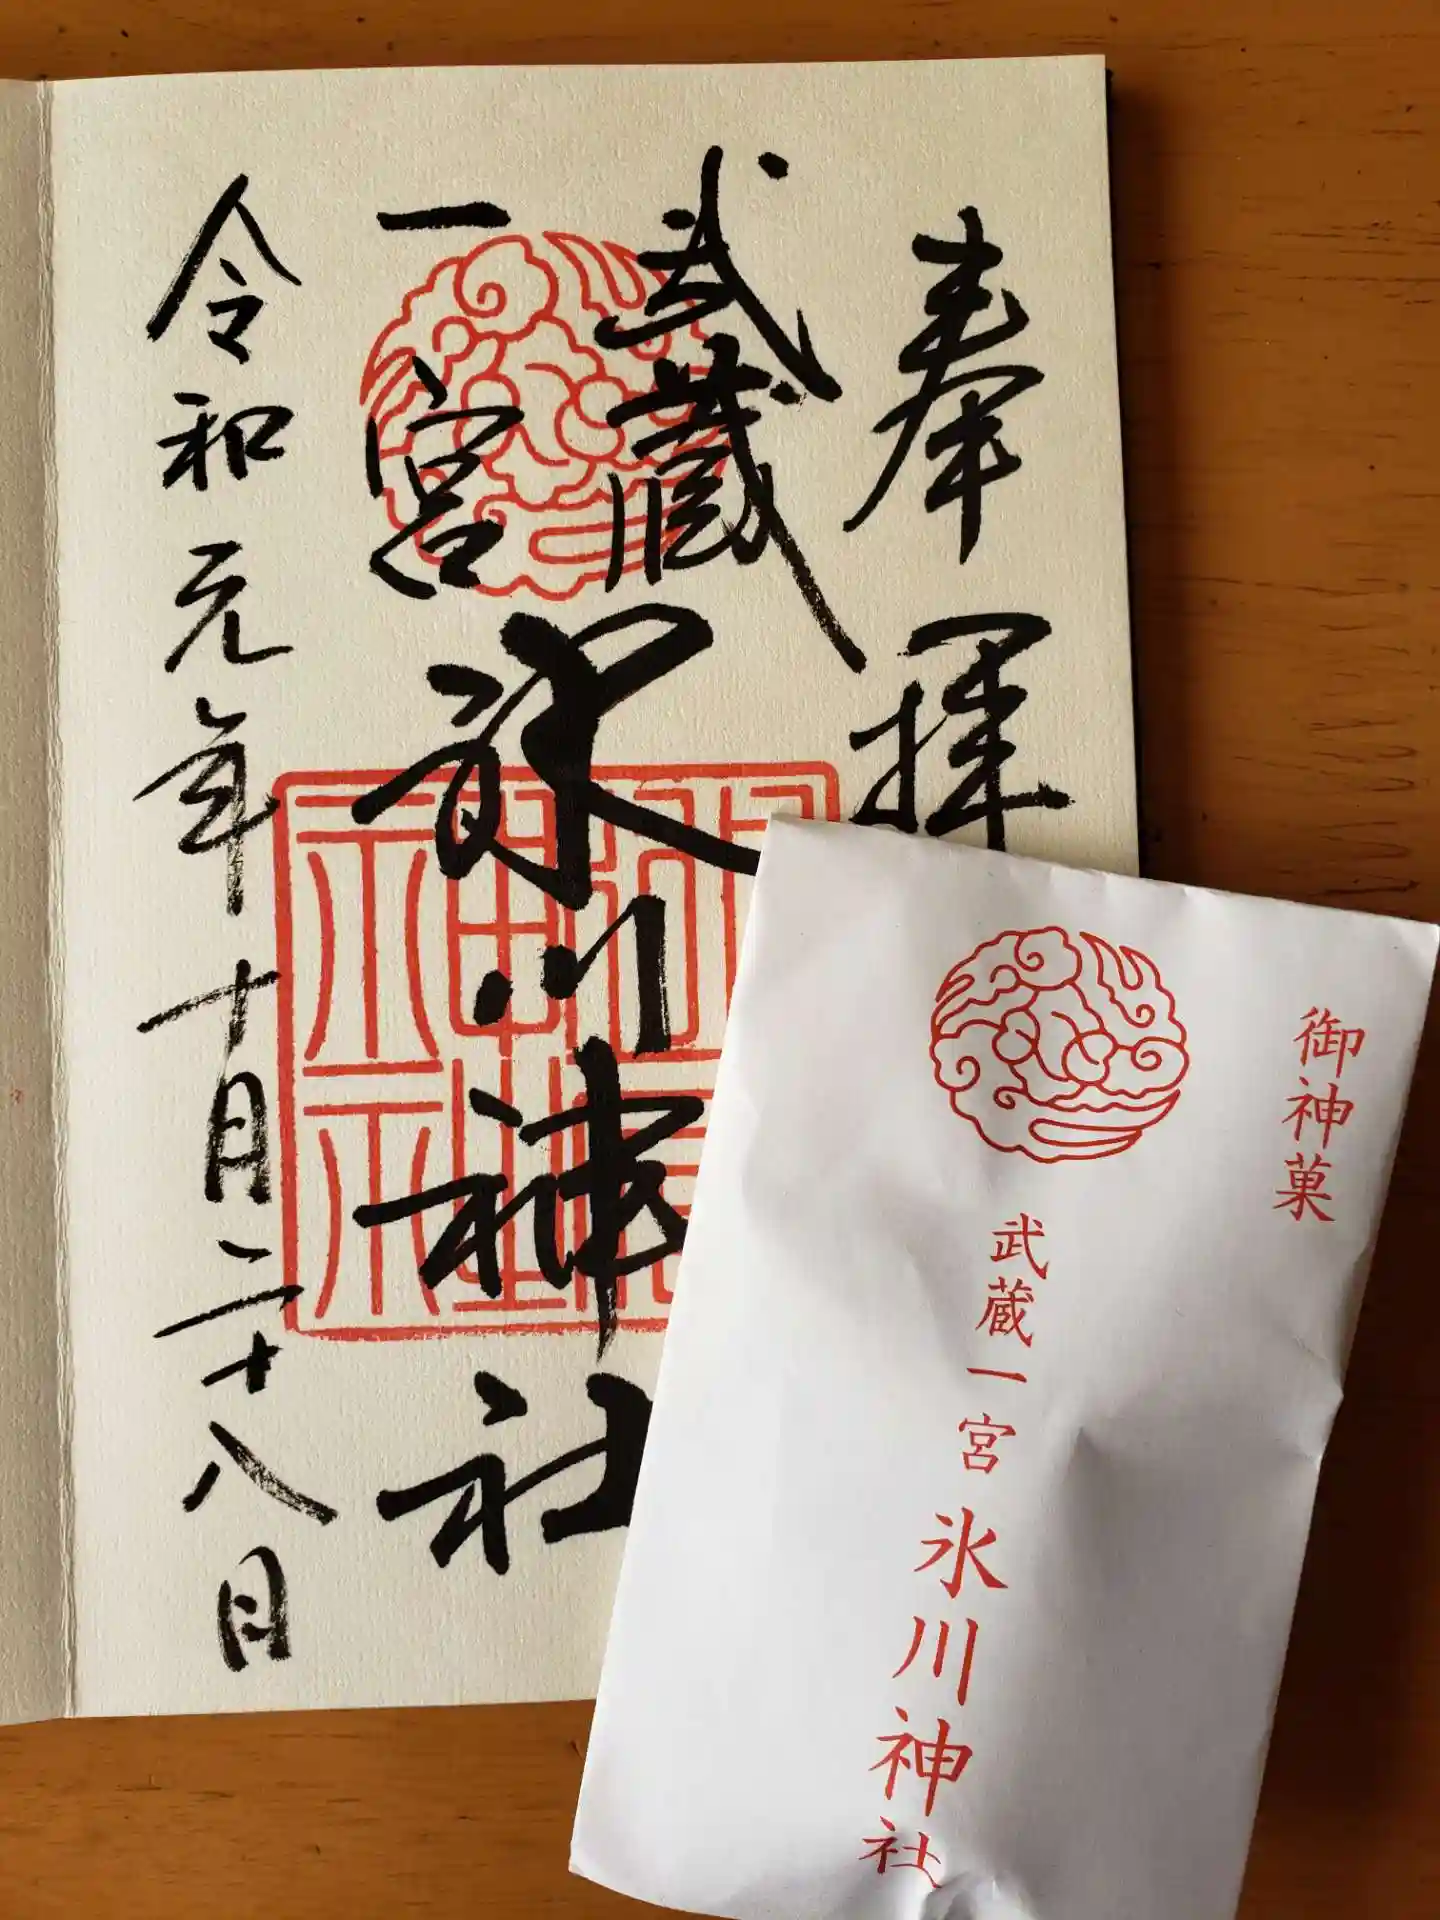 奉拝
武蔵
一宮
氷川神社
令和元年十月二十八日
御神菓
武蔵一宮 氷川神社